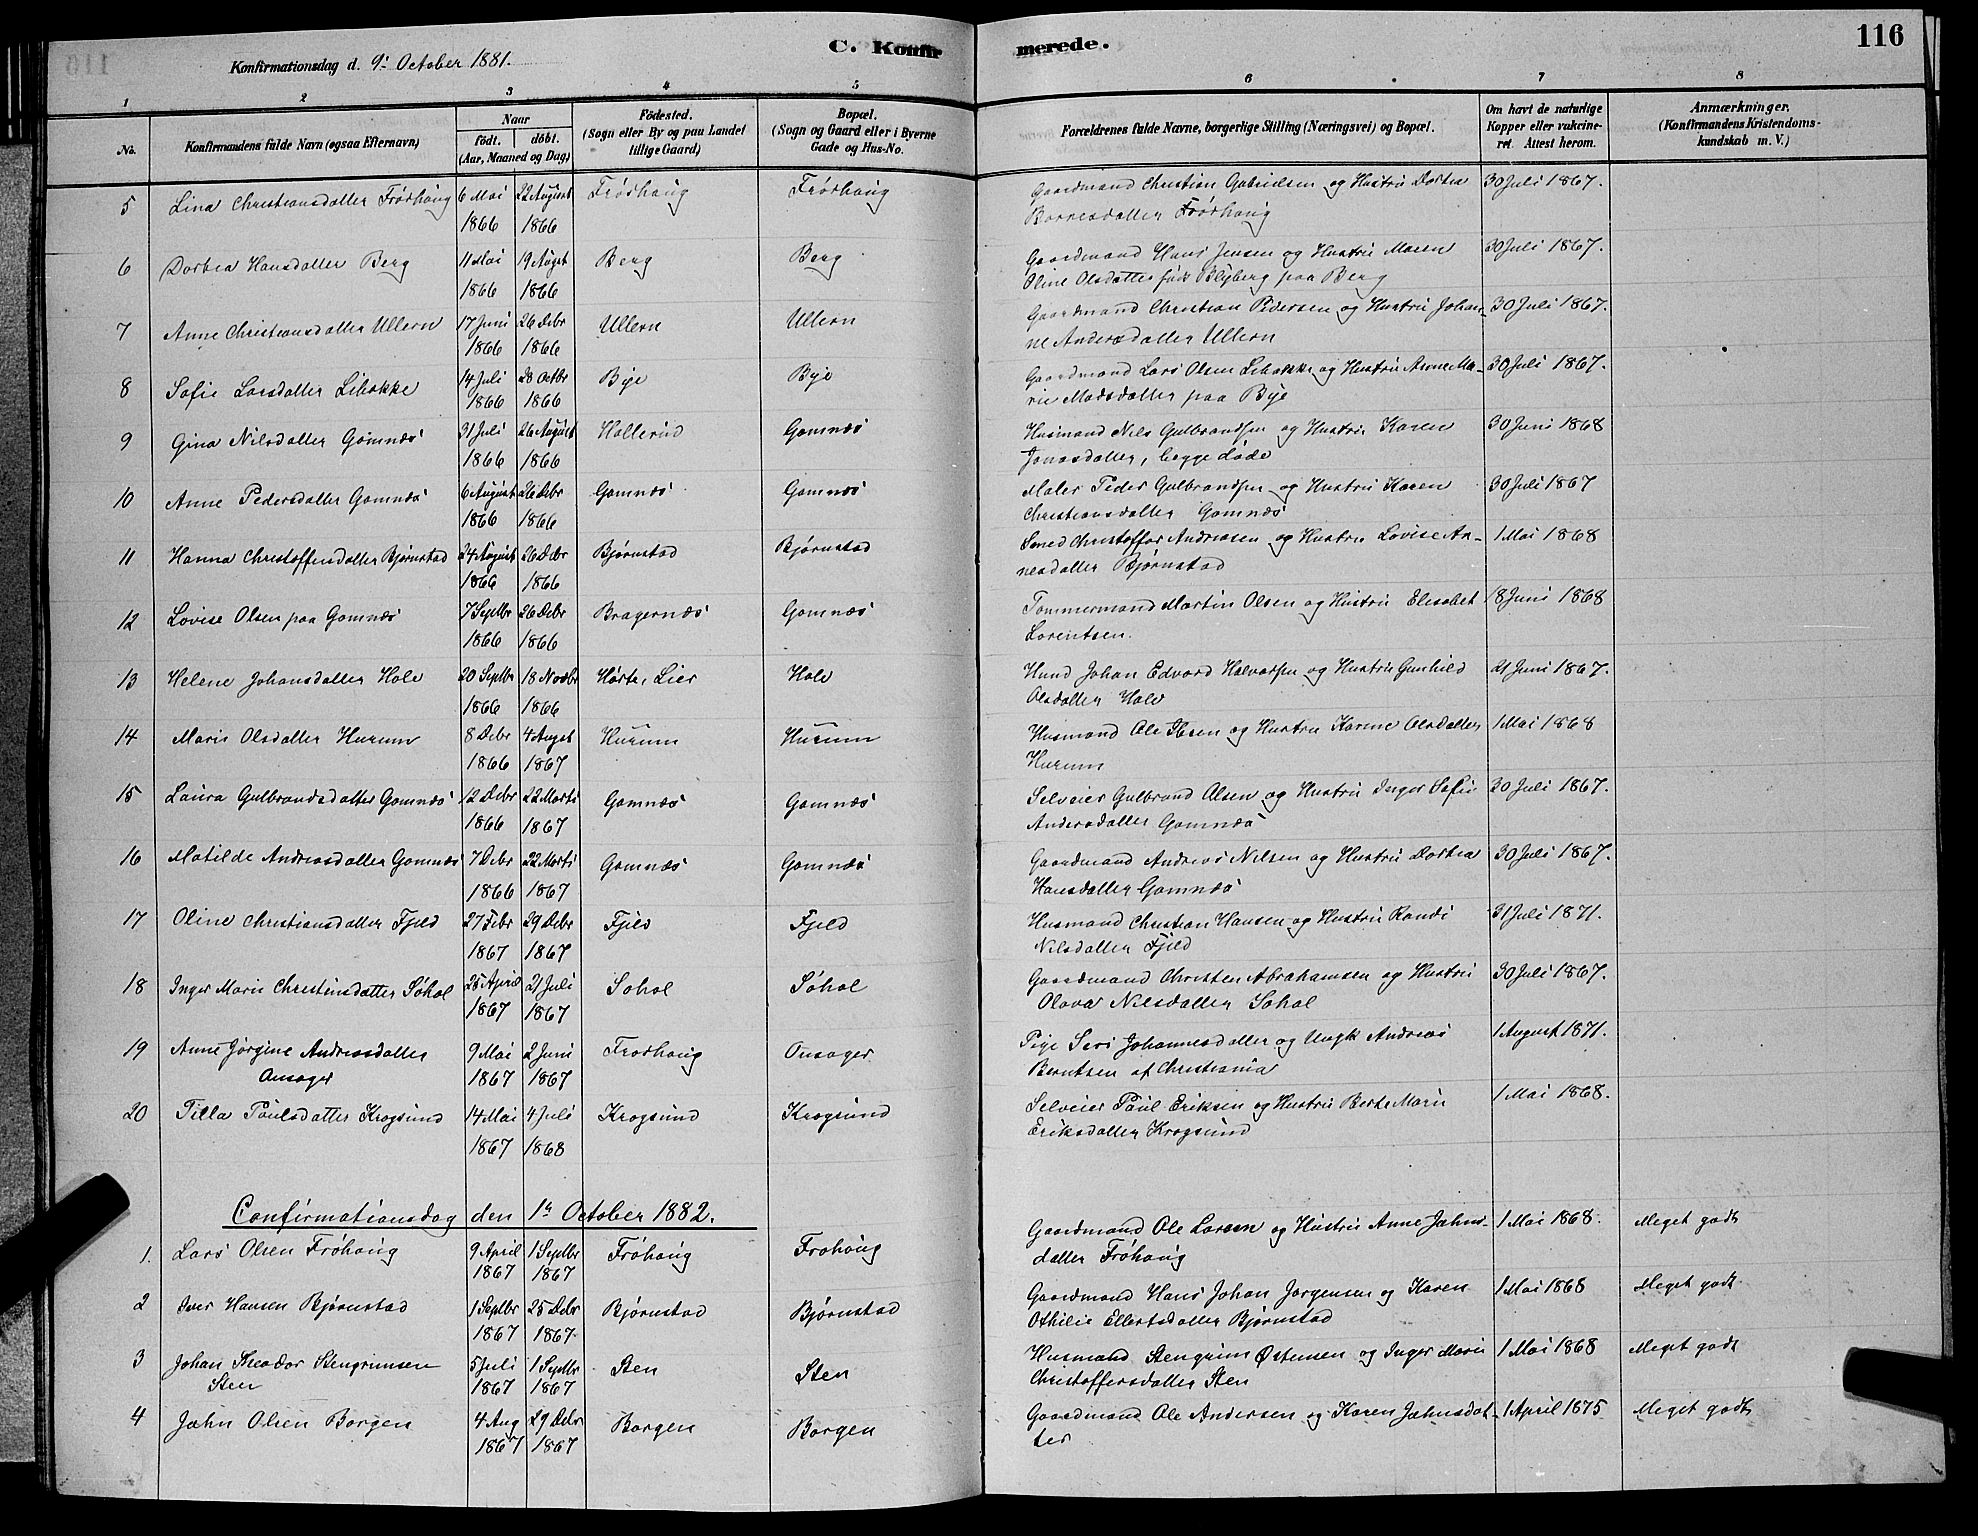 116
C. Konfirmerede.
Konfirmationsdag d. 9: October 1881.
1 2 3 4 5 6 7 8
No. Konfirmandens fulde Navn (ogsaa Efternavn) Naar født. døbt. (Aar, Maaned og Dag) Fødested. (Sogn eller By og paa Landet tillige Gaard) Bopæl. (Sogn og Gaard eller i Byerne Gade og Hus-No. Forældrenes fulde Navne, borgerlige Stilling (Næringsvei) og Bopæl. Om havt de naturlige Kopper eller vakcineret. Attest herom. Anmærkninger. (Konfirmandens Kristendomskundskab m. V.)
5 Lina Christiansdatter Frøshaug 6 Mai 22 August Frøshaug Frøshaug Gaardmand Christian Gabrielsen og Hustru Dortea 30 Juli 1867.
1866 1866 Frøshaug
6 Dorthea Hansdatter Berg 11 Mai 19 Augst Berg Berg Gaardmand Hans Jensen og Hustru Maren 30 Juli 1867.
1866 1866 Oline Olsdatter født Blyberg paa Berg
7 Anne Christiansdatter Ullern 17 Juni 26 Debr Ullern Ullern Gaardmand Christian Pedersen og Hustru Johan- 30 Juli 1867.
1866 1866 ne Andersdatter Ullern
8 Sofie Larsdatter Libakke 14 Juli 28 Octbr Bye Bye Gaardmand Lars Olsen Libakke og Hustru Anne Ma- 30 Juli 1867.
1866 1866 rie Madsdatter paa Bye
9 Gina Nilsdatter Gomnæs 31 Juli 26 August Hallerud Gomnæs Husmand Nils Gulbrandsen og Hustru Karen 30 Juni 1868
1866 1866 Jonasdatter, begge døde
10 Anne Pedersdatter Gomnæs 6 August 26 Debr Gomnæs Gomnæs Maler Peder Gulbrandsen og Hustru Karen 30 Juli 1867
1866 1866 Christiansdatter Gomnæs
11 Hanna Christoffersdatter Bjørnstad 24 August 26 Debr Bjørnstad Bjørnstad Smed Christoffer Andreasen og Hustru Lovise An- 1 Mai 1868
1866 1866 nesdatter Bjørnstad
12 Lovise Olsen paa Gomnæs 7 Septbr 26 Debr Bragernæs Gomnæs Tømmermand Martin Olsen og Hustru Elisabet 18 Juni 1868
1866 1866 Lorentsen.
13 Helene Johansdatter Hole 20 Septbr 18 Novbr Hørte, Lier Hole Johan Edvard Halvorsen og Hustru Gunhild 21 Juni 1867.
1866 1866 Olsdatter Hole
14 Marie Olsdatter Hurum 8 Debr 4 Augst Hurum Hurum Husmand Ole Ibsen og Hustru Karine Olsdatter 1 Mai 1868
1866 1867 Hurum
15 Laura Gulbrandsdatter Gomnæs 12 Debr 22 Marts Gomnæs Gomnæs Selveier Gulbrand Olsen og Hustru Inger Sofie 20 Juli 1867.
1866 1867 Andersdatter Gomnæs
16 Matilde Andreasdatter Gomnæs 7 Debr 22 Marts Gomnæs Gomnæs Gaardmand Andreas Nilsen og Hustru Dortea 30 Juli 1867.
1866 1867 Hansdatter Gomnæs
17 Oline Christiansdatter Fjeld 27 Febr 29 Debr Fjeld Fjeld Husmand Christian Hansen og Hustru Randi 31 Juli 1871.
1867 1867 Nilsdatter Fjeld
18 Inger Marie Christensdatter Søhol 25 April 21 Juli Søhol Søhol Gaardmand Christen Abrahamsen og Hustru 30 Juli 1867.
1867 1867 Olava Nilsdatter Søhol
19 Anne Jørgine Andreasdatter 9 Mai 2 Juni Frøshaug Onsager Pige Siri Johannesdatter og Ungk Andreas 1 August 1871.
Onsager 1867 1867 Berntsen af Christiania
20 Tilla Paulsdatter Krogsund 14 Mai 4 Juli Krogsund Krogsund Selveier Paul Eriksen og Hustru Berte Marie 1 Mai 1868.
1867 1868 Eriksdatter Krogsund
Confirmationsdag den 1ste October 1882.
1. Lars Olsen Frøhaug 9 April 1 Septbr Frøhaug Frøhaug Gaardmand Ole Larsen og Hustru Anne Jahns- 1 Mai 1868. Meget godt
1867 1867 datter Frøhaug
2 Iver Hansen Bjørnstad 1 Septbr 25 Debr Bjørnstad Bjørnstad Gaardmand Hans Johan Jørgensen og Karen 1 Mai 1868 Meget godt
1867 1867 Othilie Ellertsdatter Bjørnstad
3 Johan Theodor Stengrimsen 5 Juli 1 Septbr Sten Sten Husmand Stengrim Østensen og Inger Marie 1 Mai 1868 Meget godt
Sten 1867 1867 Christoffersdatter Sten
4 Jahn Olsen Borgen 4 Aug 29 Debr Borgen Borgen Gaardmand Ole Andersen og Karen Jahnsdat- 1 April 1875 Meget godt
1867 1867 ter